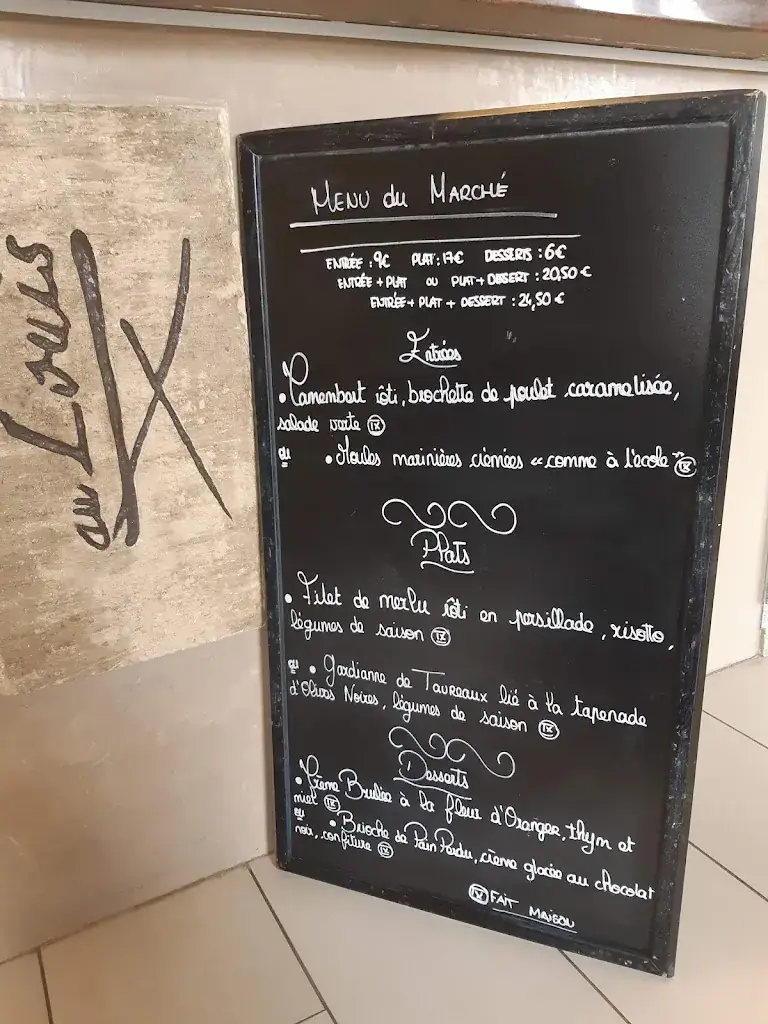 au Louis
IX
MENU du MARCHÉ
ENTRÉE : 9€ PLAT : 17€ DESSERTS : 6€
ENTRÉE + PLAT OU PLAT + DESSERT : 20,50 €
ENTRÉE + PLAT + DESSERT : 24,50 €
Entrées
• Camembert rôti, brochette de poulet caramelisée,
salade verte IX
ou • Moules marinières crémées « comme à l'école " IX
Plats
• Filet de merlu rôti en persillade, risotto,
légumes de saison IX
ou • Gardianne de Taureaux lié à la tapenade
d'Olives Noires, légumes de saison IX
Desserts
• Crème Brulée à la fleur d'Oranger, thym et
miel IX
ou • Brioche de Pain Perdu, crème glacée au chocolat
noir, confiture IX
IX FAIT MAISON